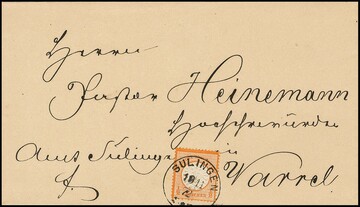 Herrn
Pastor Heinemann
Hochehrwürden
in
Amt Sulingen
Varrel
fr.
SULINGEN